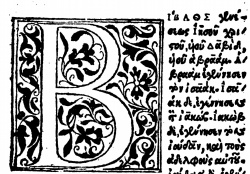 B
ΙΒΛΟΣ γενέ
σεως ἰησοῦ χρι
στοῦ, υἱοῦ δαβὶδ
υἱοῦ ἀβραάμ. ἀ
βραὰμ ἐγέννησεν
τὸν ἰσαάκ. ἰσα
ὰκ δὲ, ἐγέννησεν
τὸν ἰακώβ. ἰακὼβ
δὲ, ἐγέννησεν τὸν
ἰούδαν, καὶ τοὺς
ἀδελφοὺς αὐτοῦ